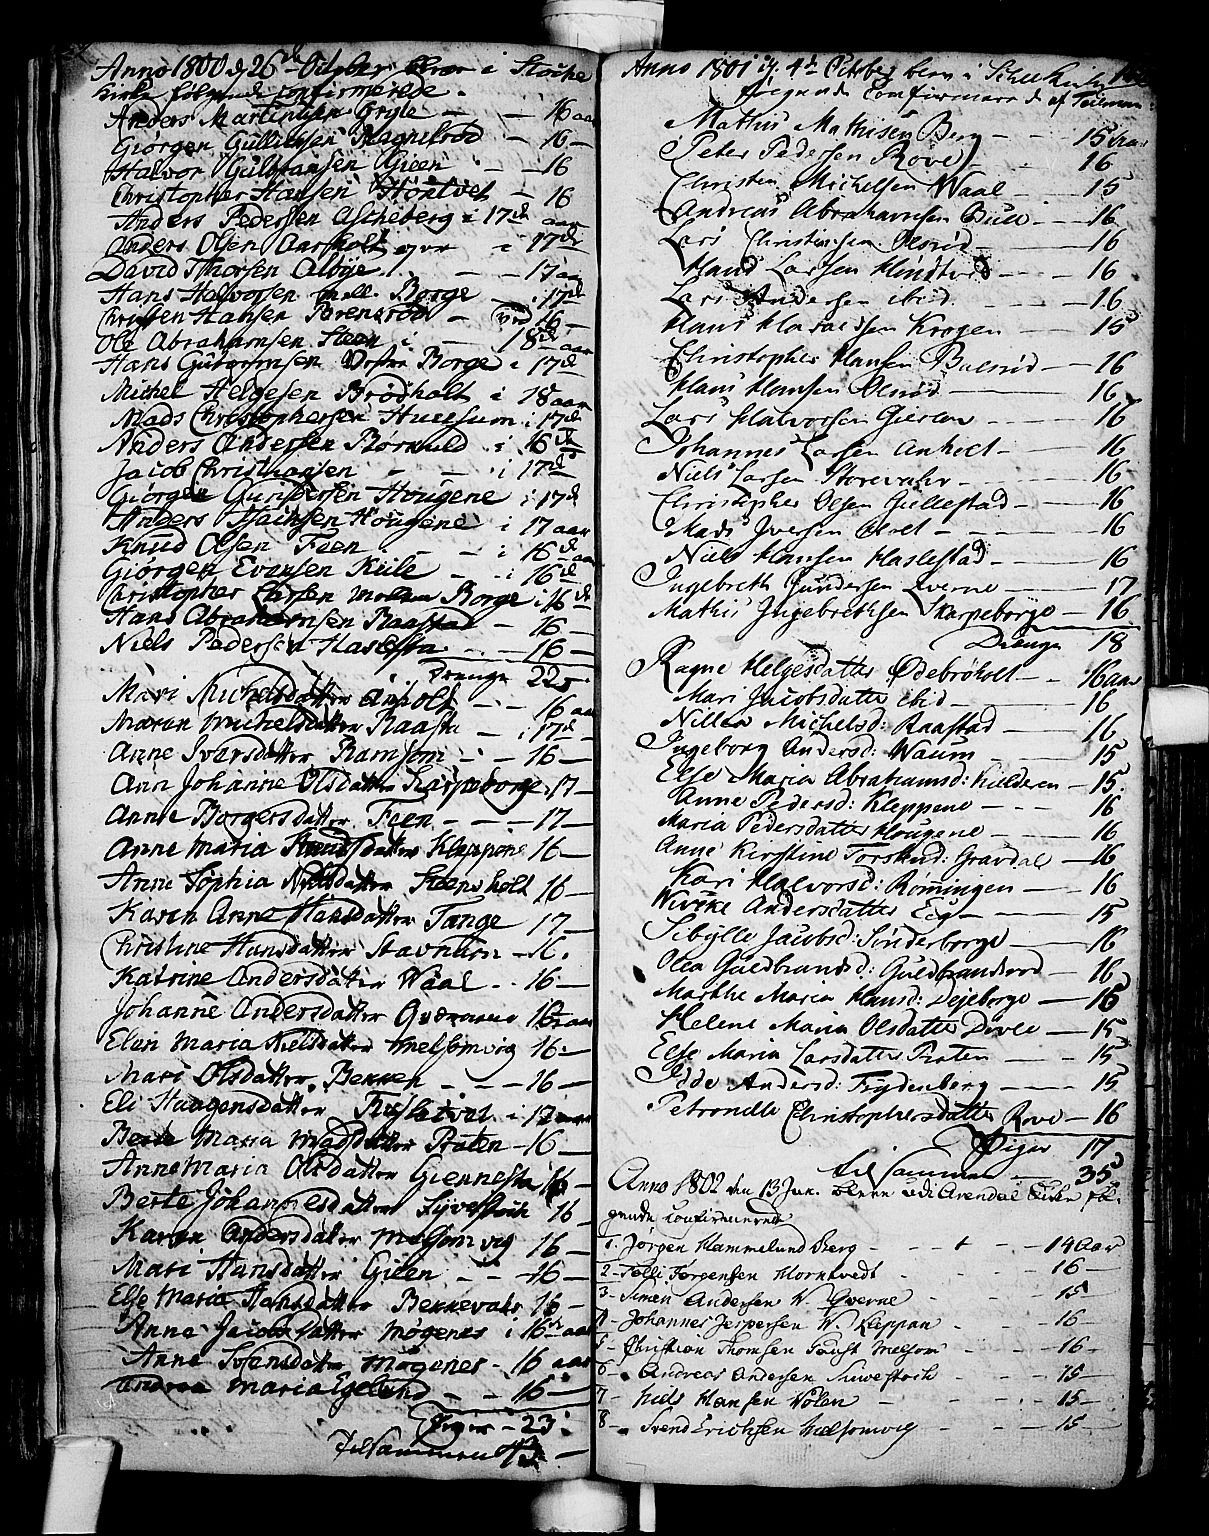 Anno 1800 d 26 October blev i Stocke
kirke følgende confirmerede.
Anders Martinsen Gryte - - 16 aar
Giørgen Gullichsen Bagnesrød - 16 -
Halvor Gulbransen Gieen - - 16
Christopher Hansen Hontvet - 16
Anders Pedersen Ascheberg i 17de aar
Anders Olsen Aarholt i 17de
David Thorsen Albye - - 17 aar
Hans Halvorsen mell. Borge i 17de
Christen Hansen Borensrød - 16 -
Ole Abrahamsen Steen i - 18de aar
Hans Guttormsen Vestre Borge i 17de
Michel Helgesen Brødholt i 18 aar
Mads Christophersen Huessum i 17de
Anders Andersen i 16de
Jacob Christiansen - - i 17de
Giørgen Gundersen Hougene i 17de
Anders Hougene i 17 aar
Knud Olsen Feen - - i 16de aar
Giørgen Evensen Kiile - i 16de
Christopher Larsen mellem Borge i 16de
Hans Abrahamsen Raastad - 16 -
Niels Pedersen Haslesta - 16 -
Drenge 22
Mari Michelsdatter Anholt - 16 aar
Maren Michelsdatter Raasta - i 17de
Anne Iversdatter Ramsom - 16 -
Ann Johanne Olsdatter Skarpeborge 17 -
Anne Borgersdatter Feen - - 17 -
Anne Maria Knudsdatter Kleppene 16 -
Anne Sophia Nielsdatter Steensholt 16 -
Karen Anne Hansdatter Tange 17 -
Christine Hansdatter Stavnum - 16.
Katrine Andersdatter Waal - 16 -
Johanne Andersdatter Qværnene 16 aar
Elen Maria Nielsdatter Melsomvig 16 -
Mari Olsdatter Bekken - - - 16 -
Eli Haagensdatter i 17 aar
Berte Maria Madsdatter Praten - 16 -
Anne Maria Olsdatter Giennesta 16
Berte Johan Nielsdatter Syvestoch 16 -
Karen Andersdatter Melsomvig 16 -
Mari Hansdatter Gieen - - 16 -
Else Maria Hansdatter Bekkevahr 16 -
Anne Jacobsdatter Møgenes i 16de aar
Anne Ivarsdatter Møgenes - 16 aar
Andrea Maria Egelund - - 16 -
Piger - 23
Tilsammen 45 -
Anno 1801 d 4de October blev i Stocke Kirke
følgende Confirmerede af
Mathis Mathisen Berg - - - 15 aar
Peter Pedersen Rove - - 16
Christen Michelsen Waal - 15
Andreas Abrahamsen Bue - 16
Lars Christensen Olsrød - 16
Hans Larsen Hundtved - - 16
Lars Andersen ibid. - - - 16
Hans Halvorsen Krogen - 15
Christopher Hansen Boensrød - 16
Hans Hansen Olsrød - 16
Lars Halvorsen Gieren - - 16
Johannes Larsen Anholt - 16
Niels Larsen Storevahr - 16
Christopher Olsen Gullestad - 16
Mads Iversen Aholt - - 16
Niels Hansen Haslestad - 16
Ingebreth Gundersen Qverne - 17
Mathis Ingebrethsen Skarpeborge - 16
Drenge 18
Ragne Helgesdatter Ødebrøholt - 16 aar
Mari Jacobsdatter ibid - 16
Nillea Michelsd: Raastad - 16
Ingeborg Andersd: Waum - 15
Else Maria Abrahamsd: Kulderen - 15
Anne Pedersd: Kleppene - - - 16
Maria Pedersdatter Hougene - 16
Anne Kirstine Torstend: Gravdal - 16
Kari Halvorsd: Romingen - 16
Wivike Andersdatter Eeg - 15
Sibylle Jacobsd: Sønderborge - 16
Olea Guldbrandsd: Guldbrandsrød - 16
Marthe Maria Hansd: Dejeborge - 16
Helene Maria Olsdatter Dirle - 15
Else Maria Larsdatter Praten - 15
Idde Andersd: Frydenberg - 15
Petronelle Christophersdatter Rove - 16
Piger 17
til sammen - 35
Anno 1802 den 13 Jun. bleve udi Arendal Kirke føl-
gende confirmerede
1. Jørgen Hammelund Berg - - + - - 14 Aar
2 - Tolli Jørgensen Horntvedt - 16 -
3 - Simen Andersen W. Qverne - - 15
4 - Johannes Jespersen W. Kleppan - - 16 -
5 - Christian Thomsen Melsom - - 16 -
6 - Andreas Andersen Suwestoch - - 15 -
7 - Niels Hansen Wolen - - 15 -
8 - Svend Erichsen Melsomvig - - 15 -